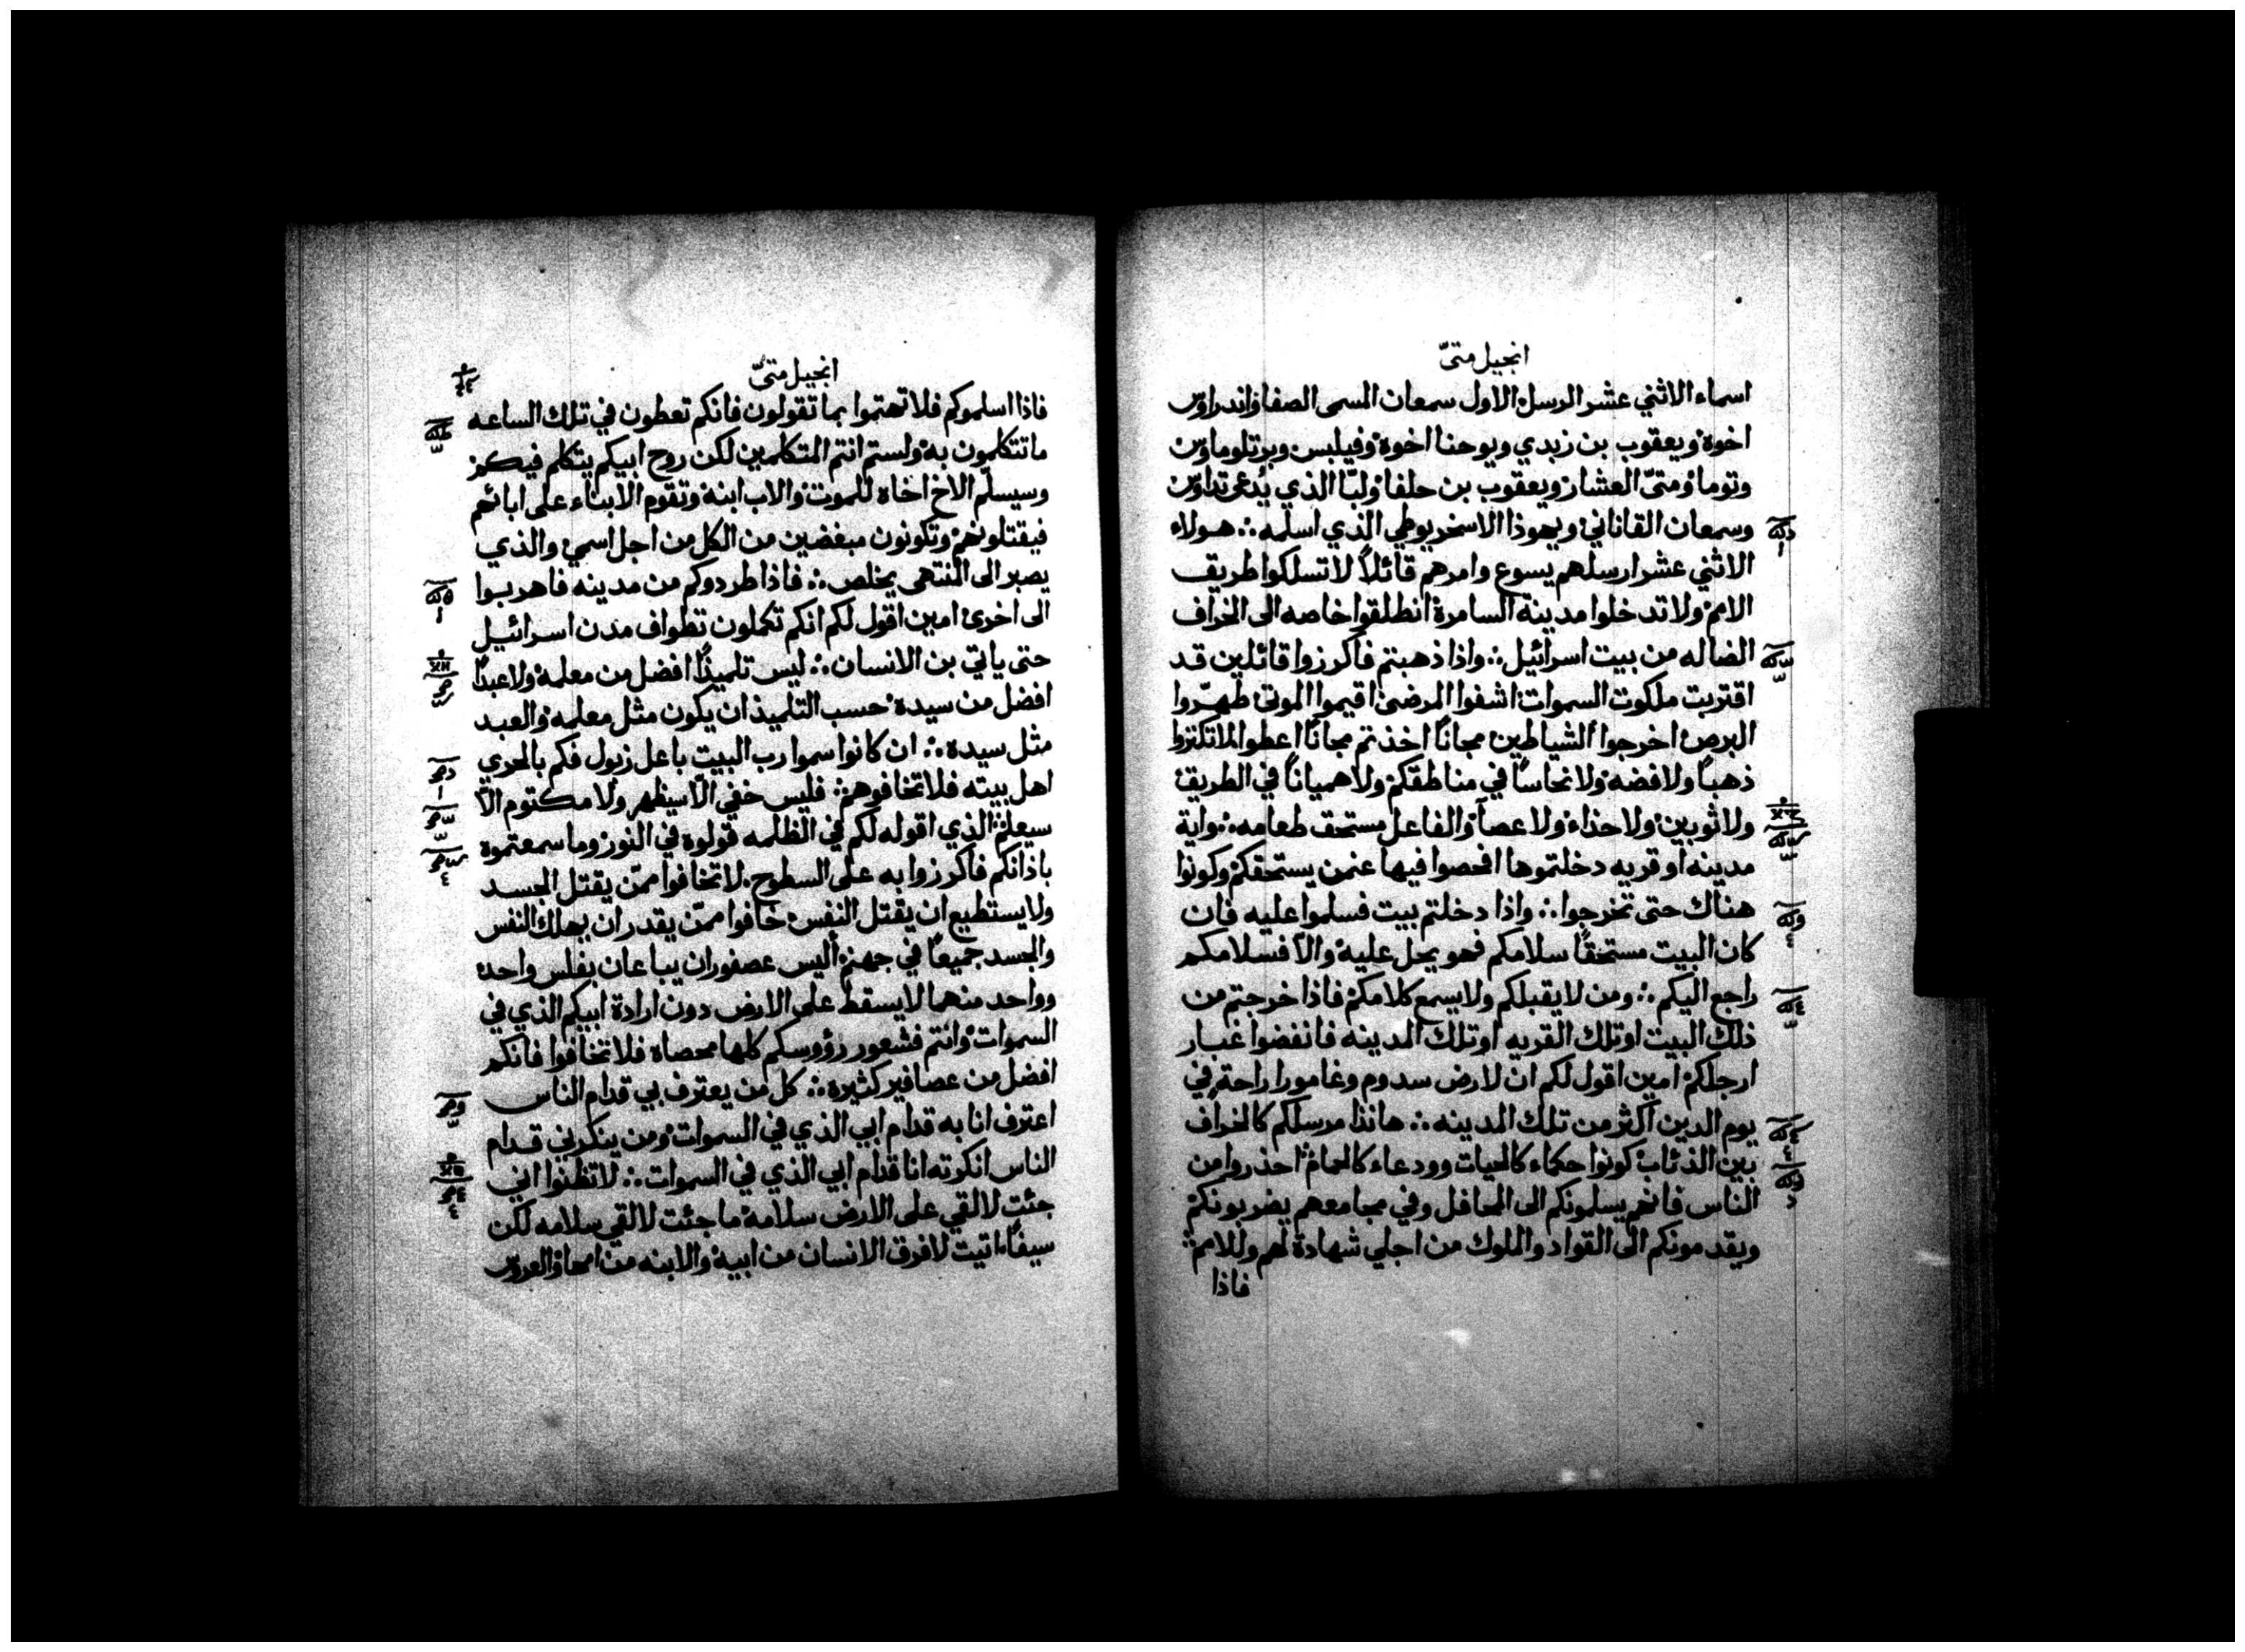 انجيل متىّ
اسماء الاثني عشر الرسل الاول سمعان المسمى الصفا واندراوس
اخوة ويعقوب بن زبدي ويوحنا اخوة وفيلبس وبرتلوماوس
وتوما ومتىّ العشار ويعقوب بن حلفا ولبّا الذي يدعى تداوس
وسمعان القاناني ويهوذا الاسخريوطي الذي اسلمه ∴ هولاء
الاثني عشر ارسلهم يسوع وامرهم قائلاً لا تسلكوا طريق
الامم ولا تدخلوا مدينة السامرة انطلقوا خاصه الى الخراف
الضاله من بيت اسرائيل ∴ واذا ذهبتم فاكرزوا قائلين قد
اقتربت ملكوت السموات اشفوا المرضى اقيموا الموتى طهّروا
البرص اخرجوا الشياطين مجاناً اخذتم مجاناً اعطوا لا تكنزوا
ذهباً ولا فضه ولا نحاساً في مناطقكم ولا همياناً في الطريق
ولا ثوبين ولا حذاء ولا عصاً والفاعل مستحق طعامه ∴ واية
مدينه او قريه دخلتموها افحصوا فيها عنمن يستحقكم وكونوا
هناك حتى تخرجوا ∴ واذا دخلتم بيت فسلموا عليه فان
كان البيت مستحقاً سلامكم فهو يحل عليه والّا فسلامكم
راجع اليكم ∴ ومن لا يقبلكم ولا يسمع كلامكم فاذا خرجتم من
ذلك البيت او تلك القريه او تلك المدينه فانفضوا غبار
ارجلكم امين اقول لكم ان لارض سدوم وغامورا راحة في
يوم الدين اكثر من تلك المدينه ∴ هانذا مرسلكم كالخراف
بين الذئاب كونوا حكماء كالحيات وودعاء كالحمام احذروا من
الناس فانهم يسلمونكم الى المحافل وفي مجامعهم يضربونكم
ويقدمونكم الى القواد والملوك من اجلي شهادة لهم وللامم
فاذا
انجيل متىّ
فاذا اسلموكم فلا تهتموا بما تقولون فانكم تعطون في تلك الساعه
ما تتكلمون به ولستم انتم المتكلمين لكن روح ابيكم يتكلم فيكم
وسيسلّم الاخ اخاه للموت والاب ابنه وتقوم الابناء على ابائهم
فيقتلونهم وتكونون مبغضين من الكل من اجل اسمي والذي
يصبر الى المنتهى يخلص ∴ فاذا طردوكم من مدينه فاهربوا
الى اخرى امين اقول لكم انكم تكملون تطواف مدن اسرائيل
حتى ياتي بن الانسان ∴ ليس تلميذاً افضل من معلمه ولا عبداً
افضل من سيدة حسب التلميذ ان يكون مثل معلمه والعبد
مثل سيده ∴ ان كانوا سموا رب البيت باعل زبول فكم بالحري
اهل بيته فلا تخافوهم فليس خفي الّا سيظهر ولا مكتوم الّا
سيعلم الذي اقوله لكم في الظلمه قولوة في النور وما سمعتموة
باذانكم فاكرزوا به على السطوح لا تخافوا ممّن يقتل الجسد
ولا يستطيع ان يقتل النفس خافوا ممّن يقدر ان يهلك النفس
والجسد جميعاً في جهنم أليس عصفوران يباعان بفلس واحد
وواحد منهما لا يسقط على الارض دون ارادة ابيكم الذي في
السموات وانتم فشعور رؤوسكم كلها محصاه فلا تخافوا فانكم
افضل من عصافير كثيرة ∴ كل من يعترف بي قدام الناس
اعترف انا به قدام ابي الذي في السموات ومن ينكرني قدام
الناس انكرته انا قدام ابي الذي في السموات ∴ لا تظنوا اني
جئت لالقي على الارض سلامه ما جئت لالقي سلامه لكن
سيفاً اتيت لافرق الانسان من ابيه والابنه من امها والعروس